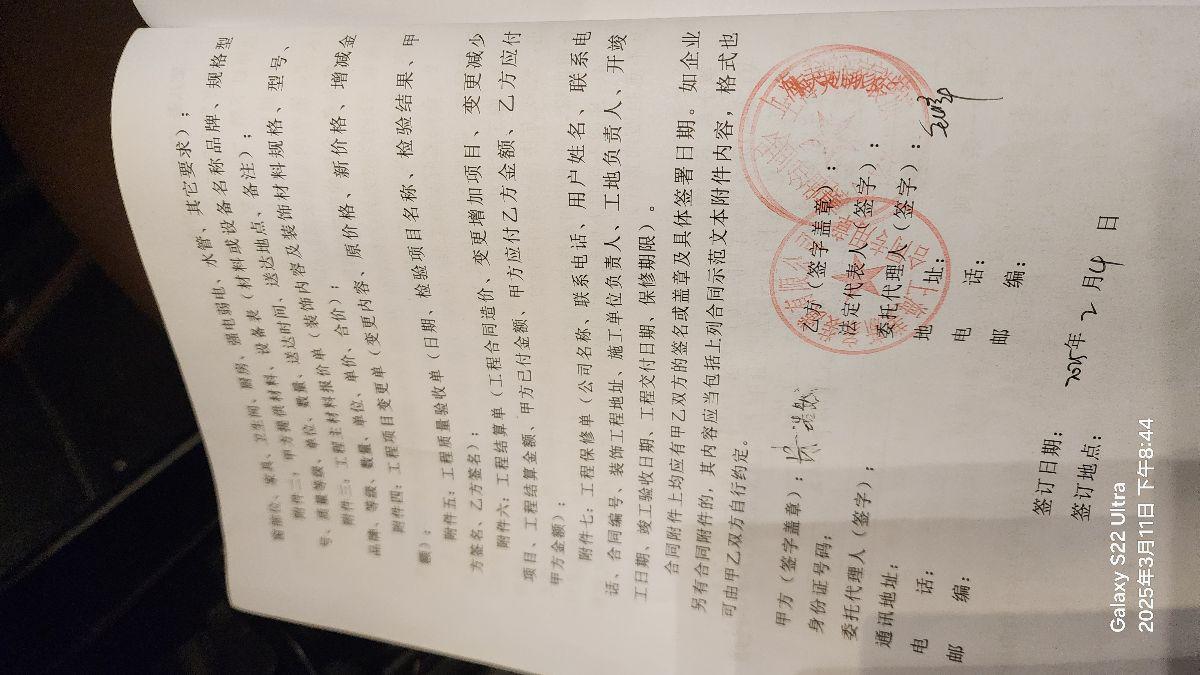 窗部位、家具、卫生间、厨房、强电弱电、水管、其它要求）；
附件二：甲方提供材料、设备表（材料或设备名称品牌、规格型
号、质量等级、单位、数量、送达时间、送达地点、备注）；
附件三：工程主材料报价单（装饰内容及装饰材料规格、型号、
品牌、等级、数量、单位、单价、合价）；
附件四：工程项目变更单（变更内容、原价格、新价格、增减金
额）；
附件五：工程质量验收单（日期、检验项目名称、检验结果、甲
方签名、乙方签名）；
附件六：工程结算单（工程合同造价、变更增加项目、变更减少
项目、工程结算金额、甲方已付金额、甲方应付乙方金额、乙方应付
甲方金额）；
附件七：工程保修单（公司名称、联系电话、用户姓名、联系电
话、合同编号、装饰工程地址、施工单位负责人、工地负责人、开竣
工日期、竣工验收日期、工程交付日期、保修期限）。
合同附件上均应有甲乙双方的签名或盖章及具体签署日期。如企业
另有合同附件的，其内容应当包括上列合同示范文本附件内容，格式也
可由甲乙双方自行约定。
甲方（签字盖章）： 乙方（签字盖章）：
身份证号码： 法定代表人（签字）：
委托代理人（签字）； 委托代理人（签字）：
通讯地址： 地 址：
电 话： 电 话：
邮 编： 邮 编：
签订日期： 2025年 2 月4 日
签订地点：
Galaxy S22 Ultra
2025年3月11日 下午8:44